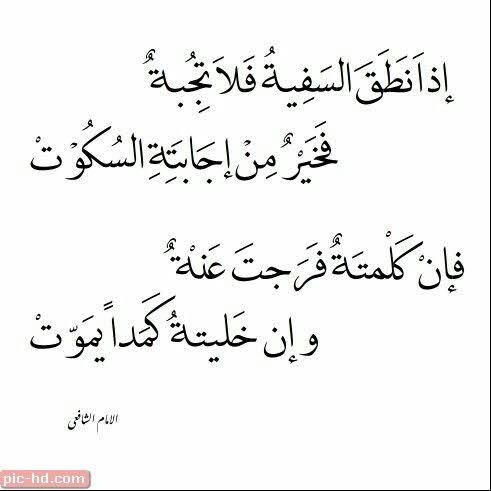 إذا نَطَقَ السَفِيةُ فَلاَ تِجُبةٌ
فَخَيَرٌ مِنْ إجَابتِةِ السُكُوْتْ
فإنْ كَلْمتَةٌ فَرَجتَ عَنْةٌ
وإن خَليتةُ كَمَداً يمَوّتْ
الامام الشافعى
pic-hd.com